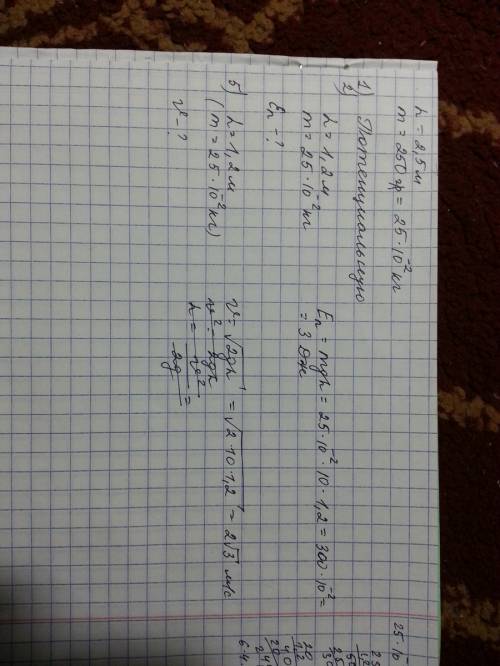 h = 2,5 м
m = 250 гр = 25·10⁻² кг
1) Потенциальную
2)
h = 1,2 м
m = 25·10⁻² кг
Eп - ?
Eп = mgh = 25·10⁻²·10·1,2 = 300·10⁻² =
= 3 Дж
5) h = 1,2 м
(m = 25·10⁻² кг)
v - ?
v = √2gh = √2·10·1,2 = 2√3 м/с
v² = 2gh
h = v²/2g =
25·10